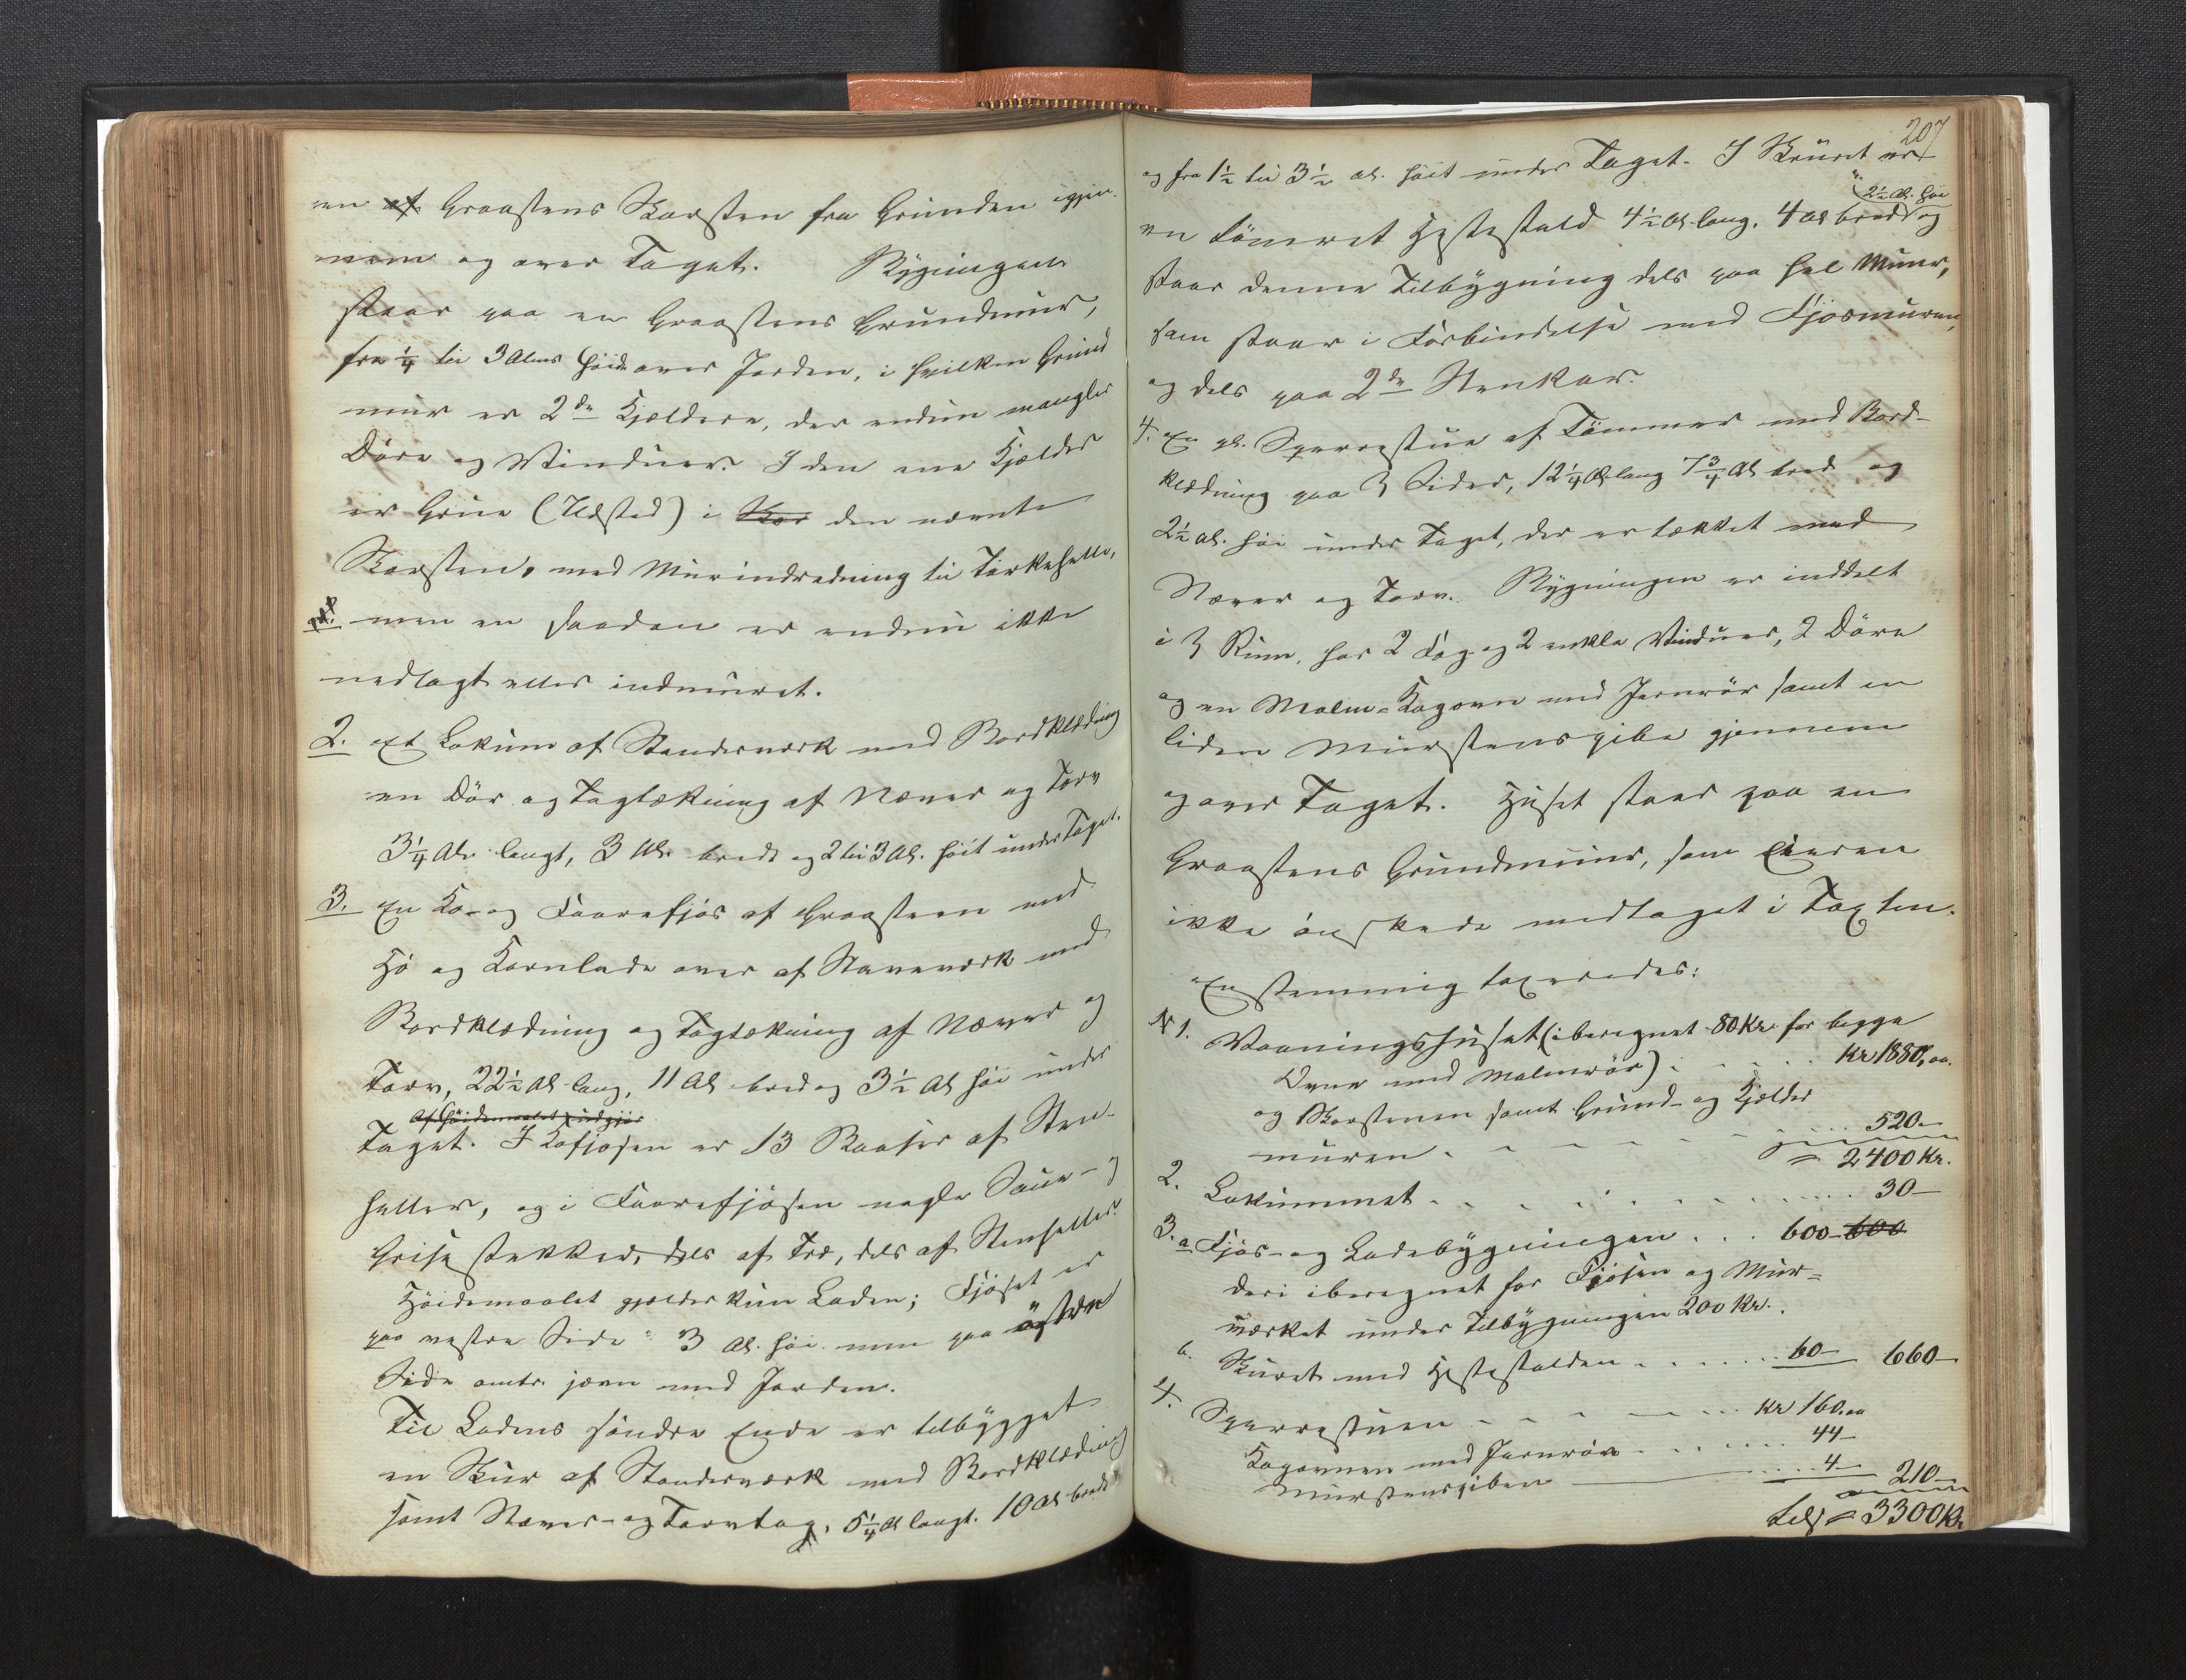 en af Graastens Skorsten fra Grunden igjen-
nem og over Taget. Bygningen
staar paa en Graastens Grundmur,
fra 1/4 til 3 Alens Høide over Jorden, i hvilken Grund
mur er 2de Kjældere, der endnu mangler
Døre og Vinduer. I den ene Kjælder
er Grue (Ildsted) i Kor den nævnte
Skorsten, med Murindredning til Tørkehelle,
men en saadan er endnu ikke
nedlagt eller indmuret.
2. et Lokum af Standerværk med Bordklædning
en Dør og Tagtækning af Næver og Torv
3 1/4 Al. langt, 3 Al. bredt og 2 til 3 Al. høit under Taget.
3. En Ko- og Faarefjøs af Graasteen med
Hø og Kornlade over af Stavværk med
Bordklædning og Tagtækning af Næver og
Torv, 22 1/2 Al lang, 11 Al bred og 3 1/2 Al høi under
Af Høidemaalet udgjør
Taget. I Kofjøsen er 13 Baaser af Sten-
heller, og i Faarefjøsen nogle Saue- og
Grisestækker, dels af Træ, dels af Stenheller.
Høidemaalet gjælder kun Laden; Fjøset er
paa vestre Side 3 Al. høi men paa østre
Side omtr. jevn med Jorden.
Til Ladens søndre Ende er tilbygget
en Skur af Standerværk med Bordklædning
samt Næver- og Torvtag, 5 1/4 Al langt. 10 Al bredt
207
og fra 1 1/2 til 3 1/2 Al. høit under Taget. I Skuret er
2 1/2 Al. høi
en tømret Hestestald 4 1/2 Al. lang, 4 Al bred og
staar denne Tilbygning dels paa hel Muur,
som staar i Forbindelse med Fjøsmuren,
og dels paa 2de Stenkar.
4. En gl. Sperrestue af Tømmer med Bord-
klædning paa 3 Sider, 12 1/4 Al lang 7 3/4 Al bred og
2 1/2 Al. høi under Taget, der er tækket med
Næver og Torv. Bygningen er inddelt
i 3 Rum, har 2 Fag og 2 enkle Vinduer, 2 Døre
og en Malm-Kogovn med Jernrør samt en
liden Murstenspibe gjennem
og over Taget. Huset staar paa en
Graastens Grundmuur, som Eieren
ikke ønskede medtaget i Taxten.
Enstemmig taxeredes:
N 1. Vaaningshuset (iberegnet 80 Kr. for begge
Ovne med Malmrør) . . . . Kr 1880,00.
og Skorstenen samt Grund- og Kjælder
muren . . . . . . 520 —
= 2400 Kr.
2. Lokummet . . . . . . . 30 —
3. a Fjøs- og Ladebygningen . . . 600 - 600
deri iberegnet for Fjøsen og Mur-
værket under Tilbygningen 200 Kr.
b. Skuret med Hestestalden . . . . . 60 — 660 —
4. Sperrestuen . . . . . . Kr 160.00
Kogovnen med Jernrør . . . . . 44 —
Murstenspiben . . . . 4 — 210 —
tils = 3300 Kr